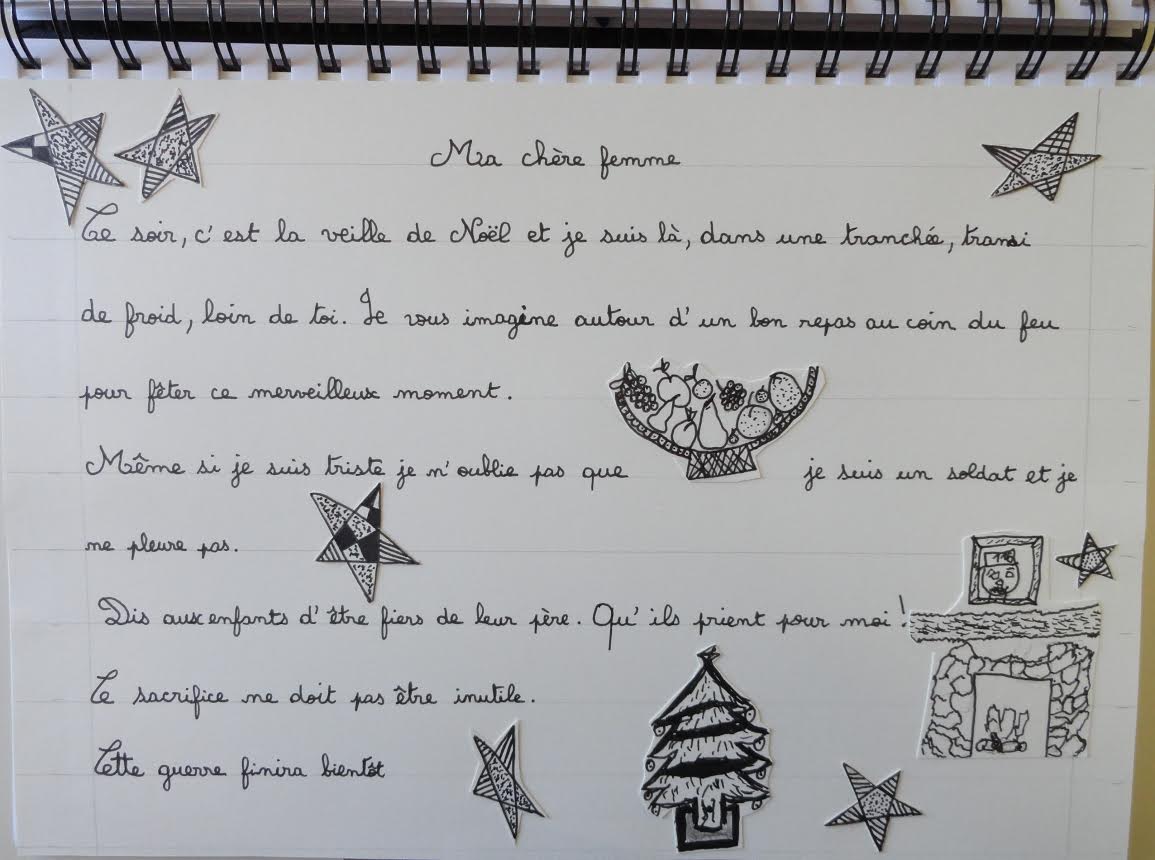 Ma chère femme
Ce soir, c'est la veille de Noël et je suis là, dans une tranchée, transi
de froid, loin de toi. Je vous imagine autour d'un bon repas au coin du feu
pour fêter ce merveilleux moment.
Même si je suis triste je n'oublie pas que je suis un soldat et je
ne pleure pas.
Dis aux enfants d'être fiers de leur père. Qu'ils prient pour moi !
Ce sacrifice ne doit pas être inutile.
Cette guerre finira bientôt